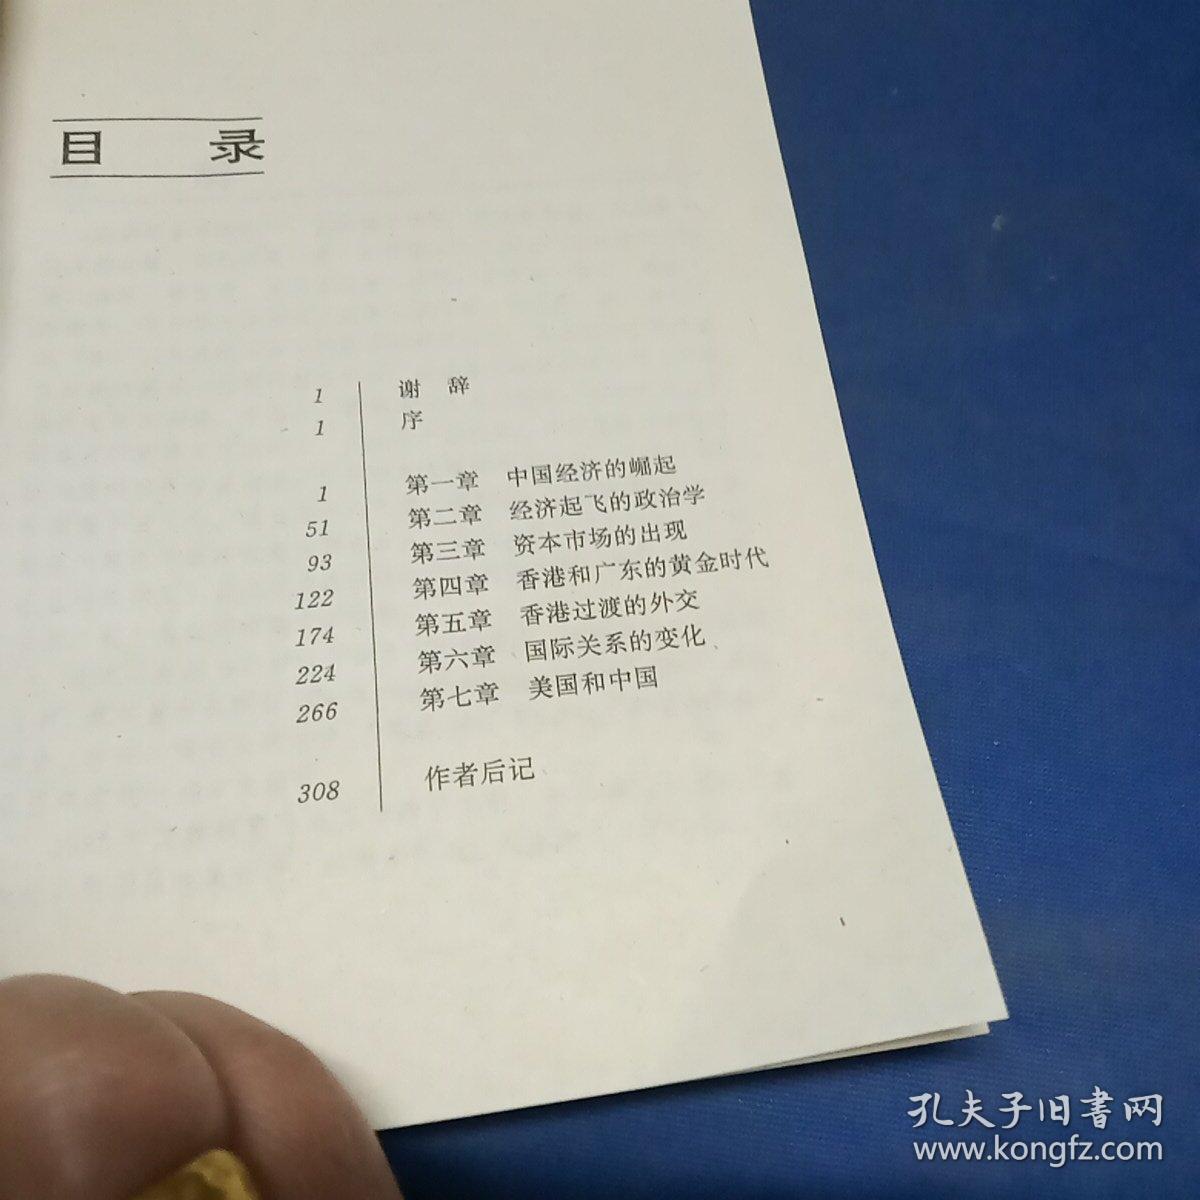 目 录
1 谢 辞
1 序
1 第一章 中国经济的崛起
51 第二章 经济起飞的政治学
93 第三章 资本市场的出现
122 第四章 香港和广东的黄金时代
174 第五章 香港过渡的外交
224 第六章 国际关系的变化
266 第七章 美国和中国
308 作者后记
孔夫子旧書网
www.kongfz.com